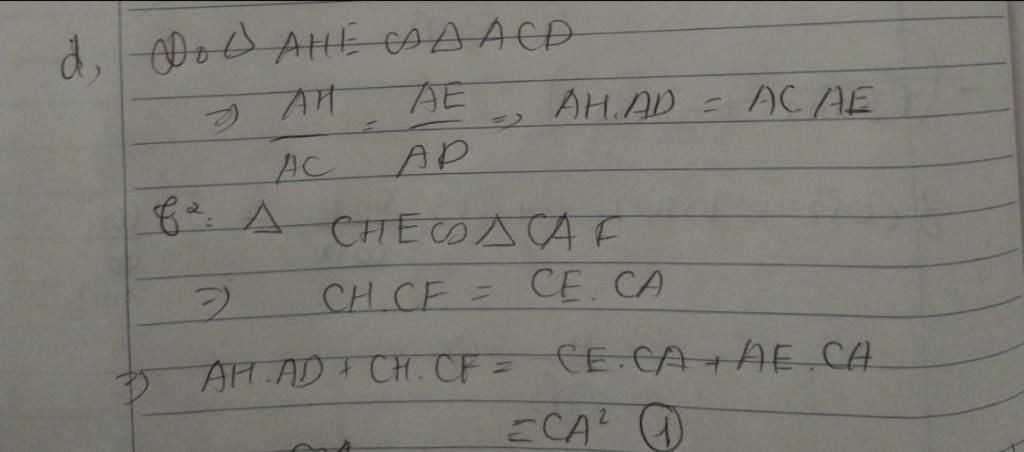 d, Do Δ AHE ∽ Δ ACD
=> AH/AC = AE/AD => AH.AD = AC AE
C²: Δ CHE ∽ Δ CAF
=> CH.CF = CE.CA
=> AH.AD + CH.CF = CE.CA + AE.CA
= CA² ①